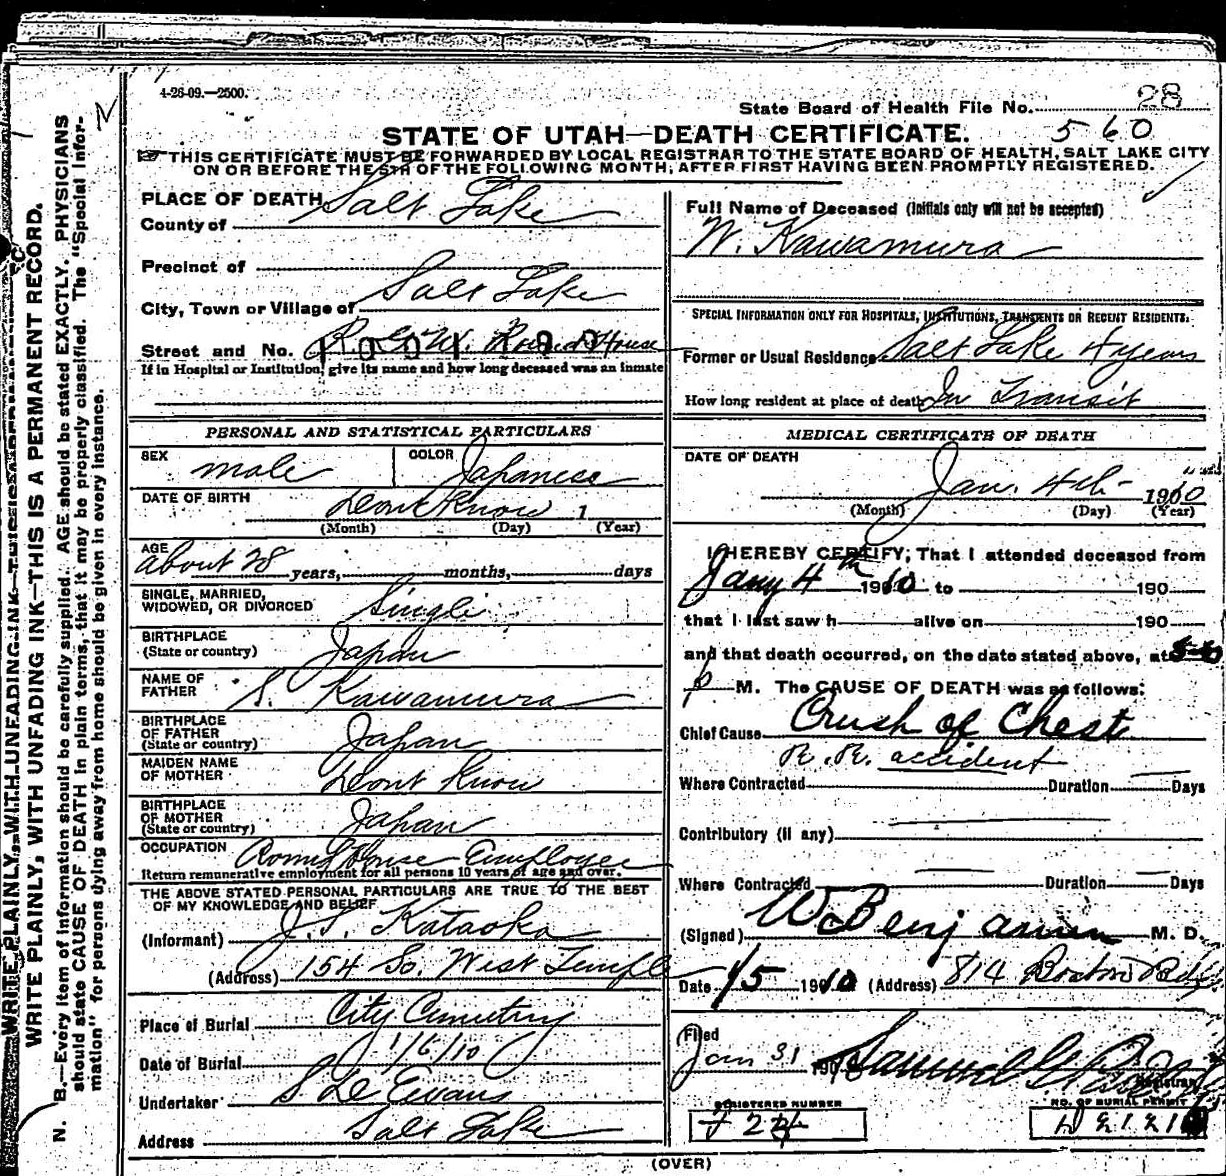 4-26-09.—2500.
State Board of Health File No. 28
STATE OF UTAH—DEATH CERTIFICATE. 560
THIS CERTIFICATE MUST BE FORWARDED BY LOCAL REGISTRAR TO THE STATE BOARD OF HEALTH, SALT LAKE CITY
ON OR BEFORE THE 5TH OF THE FOLLOWING MONTH, AFTER FIRST HAVING BEEN PROMPTLY REGISTERED.
WRITE PLAINLY, WITH UNFADING INK—THIS IS A PERMANENT RECORD.
N. B.—Every item of information should be carefully supplied. AGE should be stated EXACTLY. PHYSICIANS
should state CAUSE OF DEATH in plain terms, that it may be properly classified. The "Special Infor-
mation" for persons dying away from home should be given in every instance.
PLACE OF DEATH
County of Salt Lake
Precinct of
City, Town or Village of Salt Lake
Street and No. R. G. W. Round House
If in Hospital or Institution, give its name and how long deceased was an inmate
PERSONAL AND STATISTICAL PARTICULARS
SEX male COLOR Japanese
DATE OF BIRTH Dont Know 1
(Month) (Day) (Year)
AGE about 28 years, months, days
SINGLE, MARRIED,
WIDOWED, OR DIVORCED Single
BIRTHPLACE
(State or country) Japan
NAME OF
FATHER S. Kawamura
BIRTHPLACE
OF FATHER
(State or country) Japan
MAIDEN NAME
OF MOTHER Dont Know
BIRTHPLACE
OF MOTHER
(State or country) Japan
OCCUPATION Round House Employee
Return remunerative employment for all persons 10 years of age and over.
THE ABOVE STATED PERSONAL PARTICULARS ARE TRUE TO THE BEST
OF MY KNOWLEDGE AND BELIEF
(Informant) J. S. Kataoka
(Address) 154 So. West Temple
Place of Burial City Cemetery
Date of Burial 1/6/10
Undertaker S D Evans
Address Salt Lake
Full Name of Deceased (Initials only will not be accepted)
W. Kawamura
SPECIAL INFORMATION ONLY FOR HOSPITALS, INSTITUTIONS, TRANSIENTS OR RECENT RESIDENTS.
Former or Usual Residence Salt Lake 4 years
How long resident at place of death In Transit
MEDICAL CERTIFICATE OF DEATH
DATE OF DEATH
Jan. 4th 1910
(Month) (Day) (Year)
I HEREBY CERTIFY, That I attended deceased from
Jany 4th 1910 to 190
that I last saw h alive on 190
and that death occurred, on the date stated above, at
p M. The CAUSE OF DEATH was as follows:
Chief Cause Crush of Chest
R. R. accident
Where Contracted Duration Days
Contributory (if any)
Where Contracted Duration Days
(Signed) W Benjamin M. D.
Date 1/5 1910 (Address) 814 Boston Bldg
Filed
Jan 31 190 Samuel G.
Registrar
REGISTERED NUMBER
NO. OF BURIAL PERMIT
(OVER)